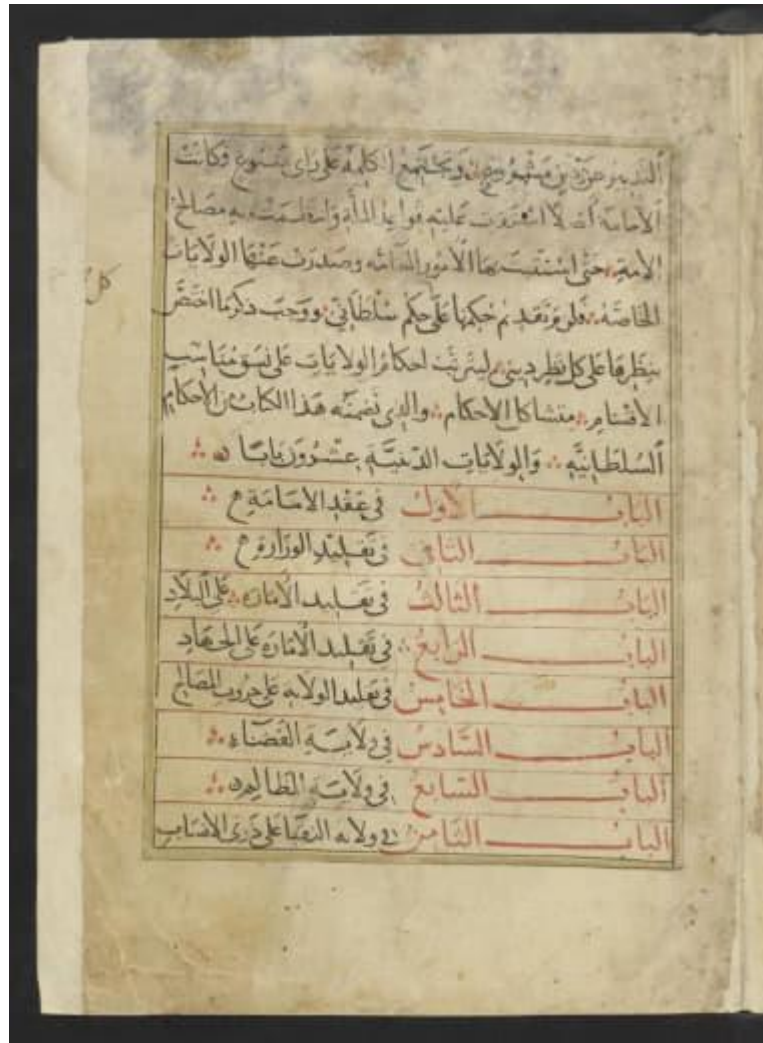 التدبير عن دين مشروع وتجتمع الكلمة على راى متبوع فكانت
الامامة اصلا استقرت عليه قواعد الملة وانتظمت به مصالح
الامة حتى استثبتت بها الامور العامة وصدرت عنها الولايات
الخاصة فلزم تقديم حكمها على حكم سلطانى ووجب ذكر ما اختص
بنظرها على كل نظر دينى لترتيب احكام الولايات على نسق متناسب
الاقسام متشاكل الاحكام والذى تضمنه هذا الكتاب من الاحكام
السلطانية والولايات الدينية عشرون بابا
الباب الاول فى عقد الامامة
الباب الثانى فى تقليد الوزارة
الباب الثالث فى تقليد الامارة على البلاد
الباب الرابع فى تقليد الامارة على الجهاد
الباب الخامس فى تقليد الولاية على حروب المصالح
الباب السادس فى ولاية القضاء
الباب السابع فى ولاية المظالم
الباب الثامن فى ولاية النقبا على ذوى الانساب